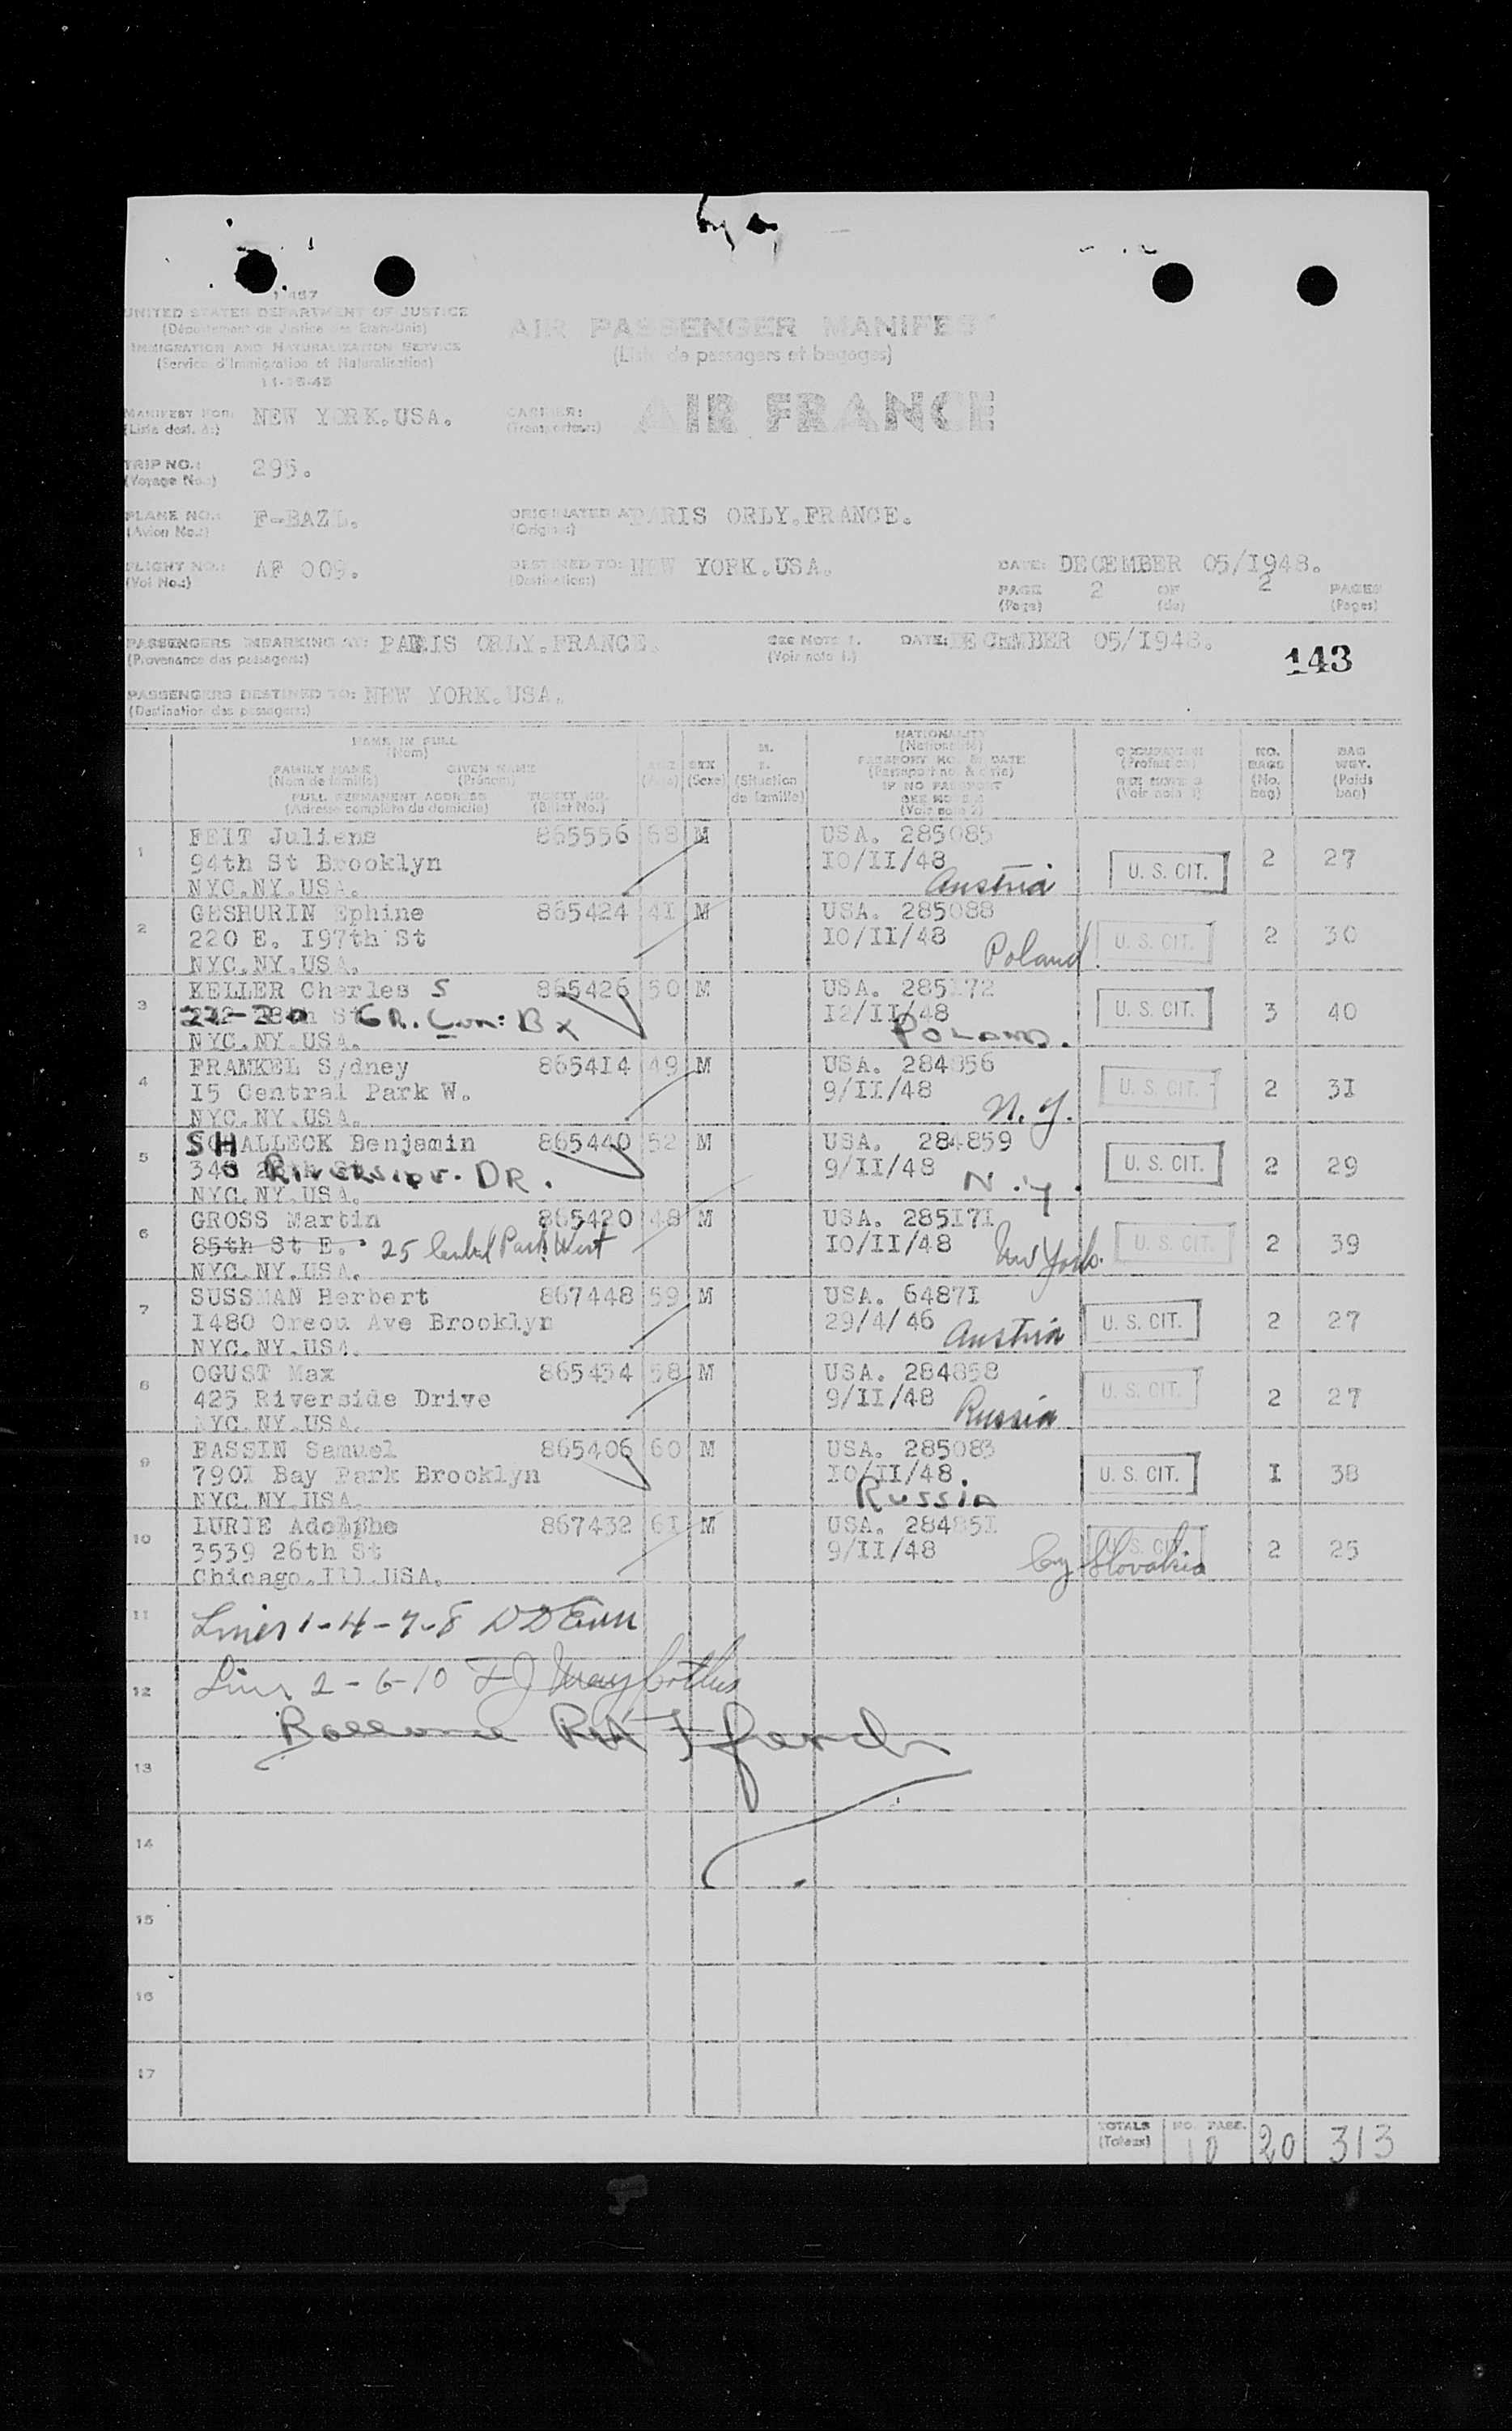 1 457
UNITED STATES DEPARTMENT OF JUSTICE
(Département de Justice des Etats-Unis)
IMMIGRATION AND NATURALIZATION SERVICE
(Service d'Immigration et Naturalisation)
11-15-45
AIR PASSENGER MANIFEST
(Liste de passagers et bagages)
MANIFEST FOR: NEW YORK.USA.
(Liste dest. à:)
CARRIER: AIR FRANCE
(Transporteur:)
TRIP NO.: 295.
(Voyage No.:)
PLANE NO.: F-BAZL.
(Avion No.:)
ORIGINATED AT PARIS ORLY.FRANCE.
(Origine:)
FLIGHT NO.: AF 009.
(Vol No.:)
DESTINED TO: NEW YORK.USA.
(Destination:)
DATE: DECEMBER 05/I948.
PAGE 2 OF 2 PAGES
(Page) (de) (Pages)
PASSENGERS EMBARKING AT: PARIS ORLY.FRANCE.
(Provenance des passagers:)
SEE NOTE 1.
(Voir note 1.)
DATE: DECEMBER 05/I948.
143
PASSENGERS DESTINED TO: NEW YORK.USA.
(Destination des passagers:)
NAME IN FULL
(Nom)
FAMILY NAME GIVEN NAME
(Nom de famille) (Prénom)
FULL PERMANENT ADDRESS TICKET NO.
(Adresse complète du domicile) (Billet No.)
AGE
(Age)
SEX
(Sexe)
M.
(Situation
de famille)
NATIONALITY
(Nationalité)
PASSPORT NO. & DATE
(Passeport no. & date)
IF NO PASSPORT
(Voir note 2)
OCCUPATION
(Profession)
(Voir note 3)
NO.
BAGS
(No.
bag)
BAG
WGT.
(Poids
bag)
1 FEIT Juliens 865556 68 M USA. 285085
94th St Brooklyn I0/II/48 U. S. CIT. 2 27
NYC.NY.USA. Austria
2 GESHURIN Ephine 865424 4I M USA. 285088
220 E. I97th St I0/II/48 U. S. CIT. 2 30
NYC.NY.USA. Poland
3 KELLER Charles S 865426 50 M USA. 285I72
GR. Con: Bx I2/II/48 U. S. CIT. 3 40
NYC.NY.USA. POLAND.
4 FRAMKEL Sydney 8654I4 49 M USA. 284856
I5 Central Park W. 9/II/48 U. S. CIT. 2 3I
NYC.NY.USA. N.Y.
5 SHALLECK Benjamin 865440 52 M USA. 284859
340 RIVERSIDE. DR. 9/II/48 U. S. CIT. 2 29
NYC.NY.USA. N.Y.
6 GROSS Martin 865420 48 M USA. 285I7I
85th St E. 25 Central Park West I0/II/48 U. S. CIT. 2 39
NYC.NY.USA. New York.
7 SUSSMAN Herbert 867448 59 M USA. 6487I
I480 Oreou Ave Brooklyn 29/4/46 U. S. CIT. 2 27
NYC.NY.USA. Austria
8 OGUST Max 865434 58 M USA. 284858
425 Riverside Drive 9/II/48 U. S. CIT. 2 27
NYC.NY.USA. Russia
9 BASSIN Samuel 865406 60 M USA. 285083
790I Bay Park Brooklyn I0/II/48. U. S. CIT. I 38
NYC.NY.USA. Russia
10 LURIE Adolphe 867432 6I M USA. 28485I
3539 26th St 9/II/48 U. S. CIT. 2 25
Chicago.Ill.USA. Cz Slovakia
11 Lines 1-4-7-8
12 Lines 2-6-10
13
14
15
16
17
TOTALS NO. PASS. 10 20 313
(Totaux)